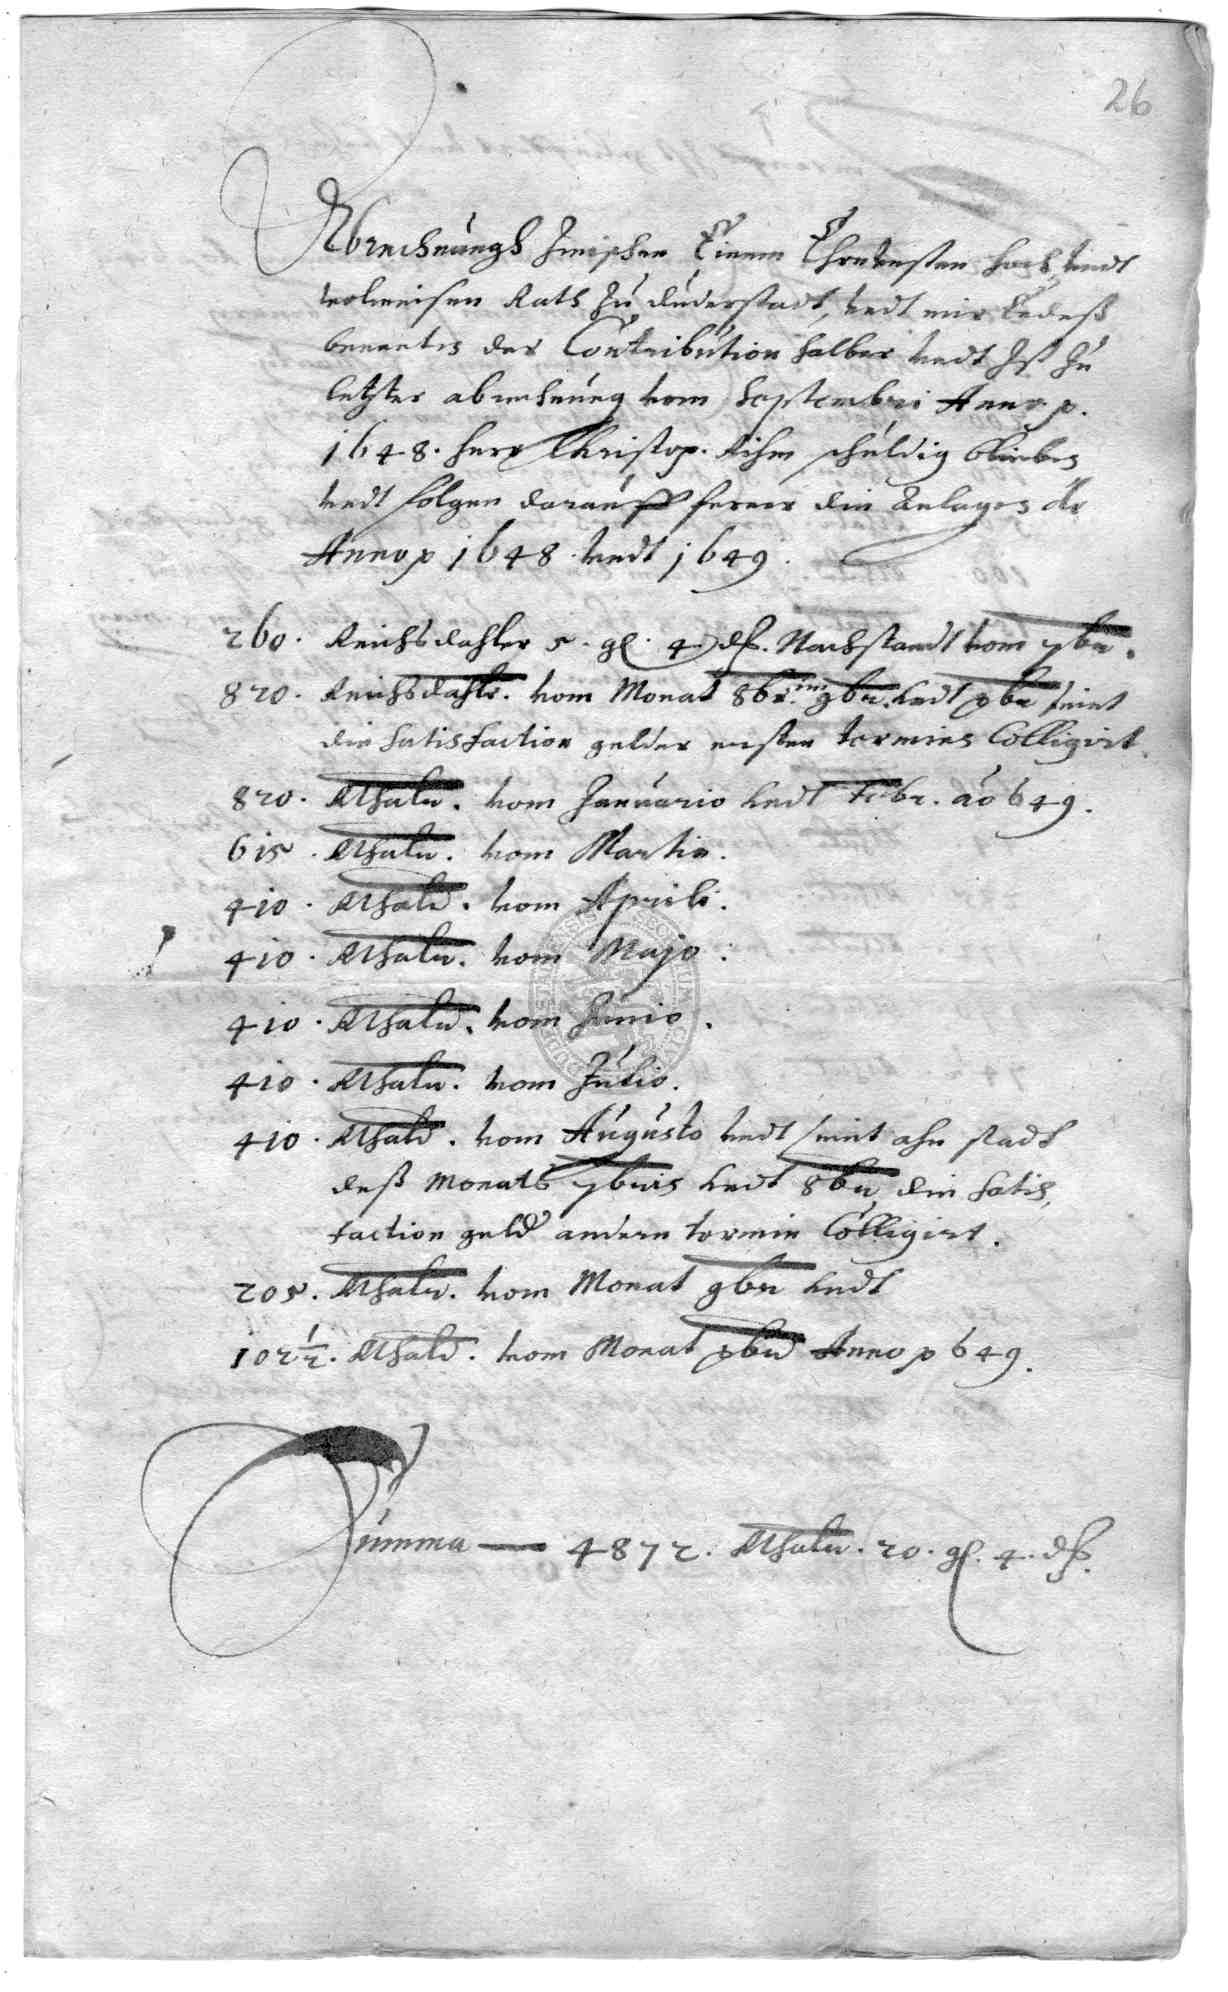 26
Abrechnungh Zwischen Einem Ehrnvesten hoch vndt
wolweisen Rath Zu Duderstadt, vndt mir Endeß
benentes der Contribution halber vndt Ist Zu
letzter abrechnung vom Septembri Anno p.
1648. herr Christop. schuldig blieben
vndt folgen darauff ferner die Anlagen de
Anno p 1648 vndt 1649.
260. Reichsdahler 5. gl. 4 d. Nachstandt vom 7br.
820. Reichsdahlr. vom Monat 8br. 9br. vndt xbr seint
die satisfaction gelder ersten termins Colligirt.
820. Rthalr. vom Januario vndt Febr. ao 649.
615. Rthalr. vom Martio.
410. Rthalr. vom Aprili.
410. Rthalr. vom Majo.
410. Rthalr. vom Junio.
410. Rthalr. vom Julio.
410. Rthalr. vom Augusto vndt seint ahn stadt
deß Monats 7bris vndt 8br die satis,
faction geld andern termin Colligirt.
205. Rthalr. vom Monat 9br vndt
102½. Rthalr. vom Monat xbr Anno p 649.
Summa — 4872. Rthalr. 20. gl. 4. d.